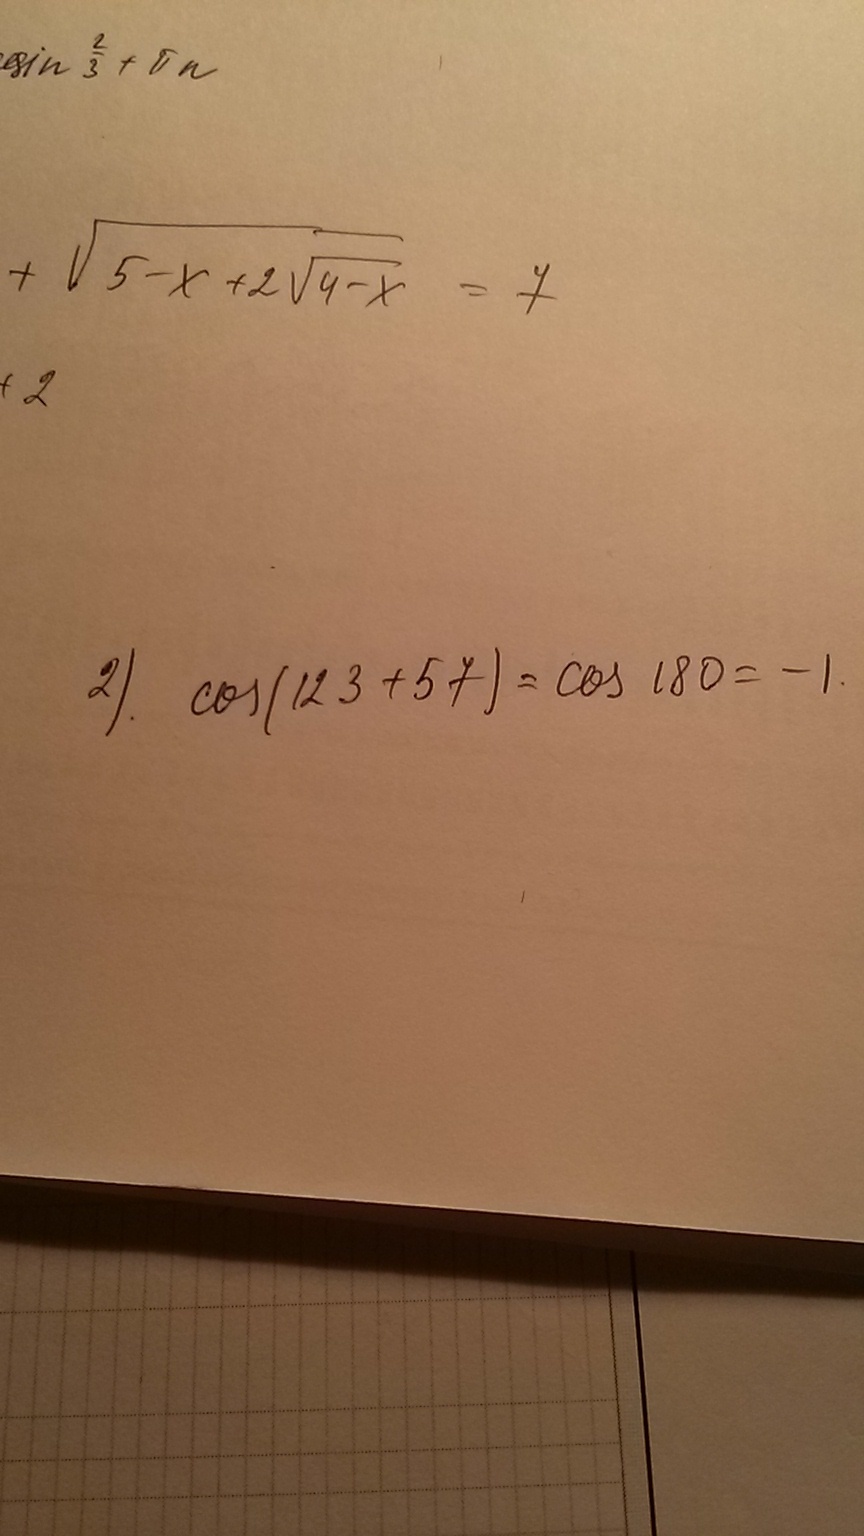 sin 2/3 + πn
+ √(5-x+2√(4-x)) = 7
+ 2
2). cos(123+57)= cos 180= -1.